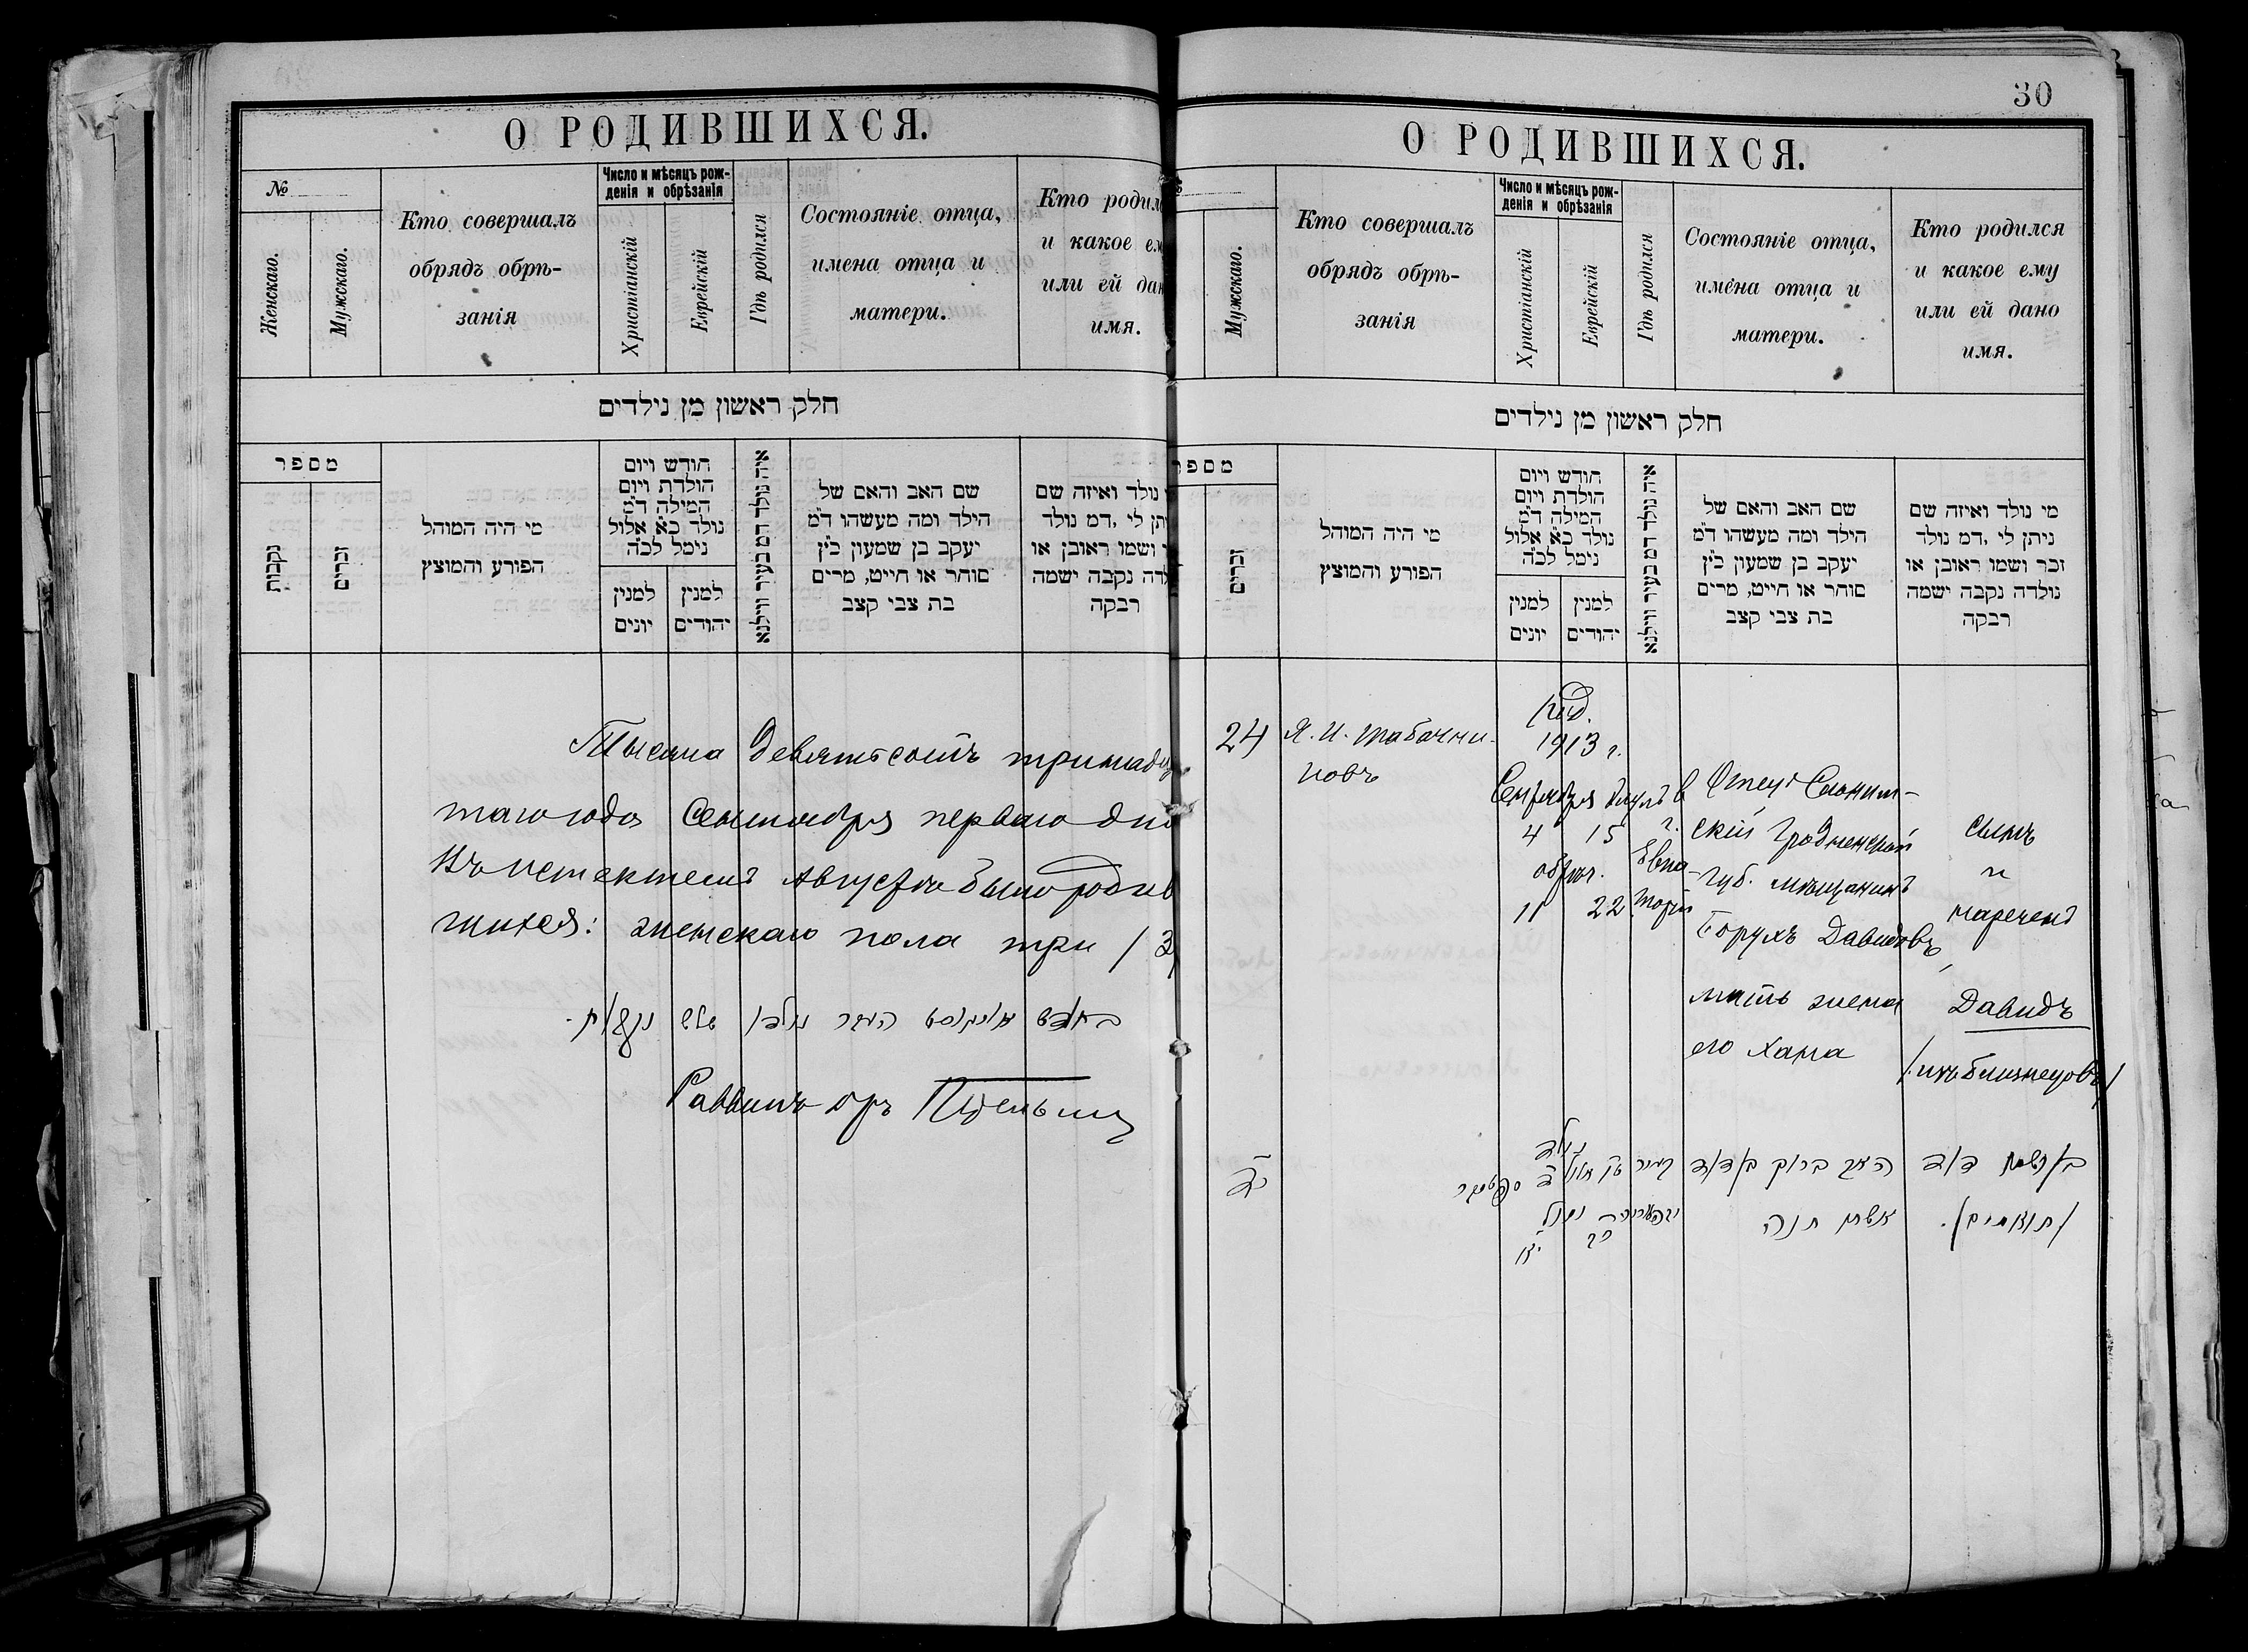 О РОДИВШИХСЯ.
№
Женскаго.
Мужскаго.
Кто совершалъ
обрядъ обрѣ-
занія
Число и мѣсяцъ рож-
денія и обрѣзанія
Христіанскій
Еврейскій
Гдѣ родился
Состояніе отца,
имена отца и
матери.
Кто родил
и какое ем
или ей дан
имя.
חלק ראשון מן נילדים
מספר
נקבות
זכרים
מי היה המוהל
הפורע והמוצץ
חודש ויום
הולדת ויום
המילה ד״מ
נולד כ״א אלול
נימל לכ״ה
למנין
יונים
למנין
יהודים
איה נולד דמ בעיר ווילנא
שם האב והאם של
הילד ומה מעשהו ד״מ
יעקב בן שמעון כ״ץ
סוחר או חייט, מרים
בת צבי קצב
נולד ואיזה שם
יתן לי ,דמ נולד
ושמו ראובן או
לדה נקבה ישמה
רבקה
Тысяча девятьсотъ тринадц
таго года Сентября перваго дня
въ истекшемъ Августѣ было родив
шихся: женскаго пола три /3/
בחדש אויגוסט העבר נולדו שלש נקבות.
Раввинъ
30
О РОДИВШИХСЯ.
Мужскаго.
Кто совершалъ
обрядъ обрѣ-
занія
Число и мѣсяцъ рож-
денія и обрѣзанія
Христіанскій
Еврейскій
Гдѣ родился
Состояніе отца,
имена отца и
матери.
Кто родился
и какое ему
или ей дано
имя.
חלק ראשון מן נילדים
מספר
זכרים
מי היה המוהל
הפורע והמוצץ
חודש ויום
הולדת ויום
המילה ד״מ
נולד כ״א אלול
נימל לכ״ה
למנין
יונים
למנין
יהודים
איה נולד דמ בעיר ווילנא
שם האב והאם של
הילד ומה מעשהו ד״מ
יעקב בן שמעון כ״ץ
סוחר או חייט, מרים
בת צבי קצב
מי נולד ואיזה שם
ניתן לי ,דמ נולד
זכר ושמו ראובן או
נולדה נקבה ישמה
רבקה
24
Я. И. Табачни-
ковъ
род.
1913 г.
Сентября Элулъ
4 15
обрѣз.
11 22
в
г.
Евпа-
торіи
Отецъ Слоним-
скій Гродненской
губ. мѣщанинъ
Борухъ Давидовъ,
мать жена
его Хана
сынъ
и
нареченъ
Давидъ
/изъ близнецовъ/
כ״ד
נולד
ט״ו אלול ד׳ ספטמבר
נמול
כ״ב
י״א
האב ברוך בן דוד
אשתו חנה
בן ושמו דוד
/תואמים/.